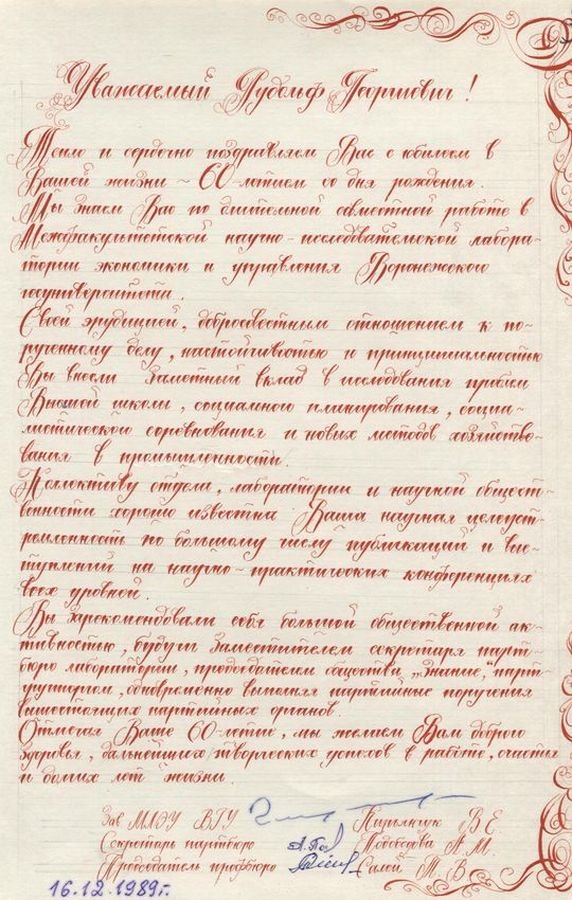 Уважаемый Рудольф Георгиевич!
Тепло и сердечно поздравляем Вас с юбилеем в
Вашей жизни – 60-летием со дня рождения.
Мы знаем Вас по длительной совместной работе в
Межфакультетской научно-исследовательской лабора-
тории экономики и управления Воронежского
госуниверситета.
Своей эрудицией, добросовестным отношением к по-
рученному делу, настойчивостью и принципиальностью
Вы внесли заметный вклад в исследования проблем
Высшей школы, социального планирования, социа-
листического соревнования и новых методов хозяйство-
вания в промышленности.
Коллективу отдела, лаборатории и научной общест-
венности хорошо известна Ваша научная целеуст-
ремленность по большому числу публикаций и выс-
туплений на научно-практических конференциях
всех уровней.
Вы зарекомендовали себя большой общественной ак-
тивностью, будучи заместителем секретаря парт-
бюро лаборатории, председателем общества „Знание“, парт-
группоргом, одновременно выполняя партийные поручения
вышестоящих партийных органов.
Отмечая Ваше 60-летие, мы желаем Вам доброго
здоровья, дальнейших творческих успехов в работе, счастья
и долгих лет жизни.
Зав МЛЭУ ВГУ В.Е.
Секретарь партбюро А.М.
Председатель профбюро В.
16.12.1989г.